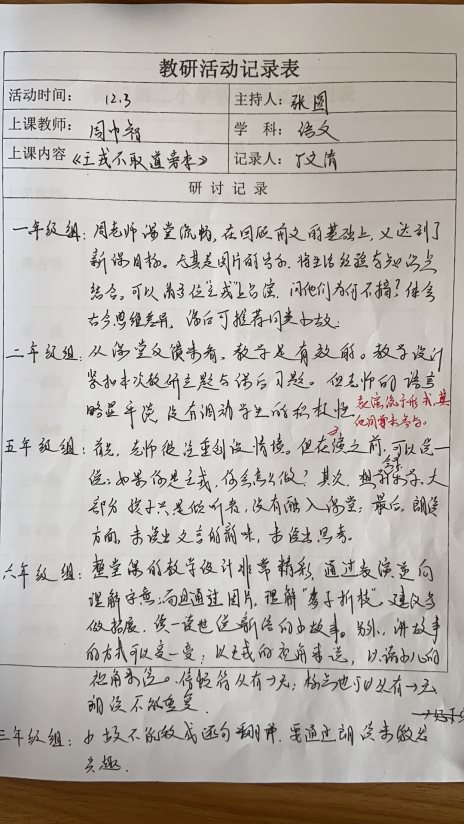 教研活动记录表
活动时间： 12.3 主持人：张圆
上课教师： 周中智 学 科： 语文
上课内容《王戎不取道旁李》 记录人：丁文清
研 讨 记 录
一年级组：周老师课堂流畅，在回顾前文的基础上，又达到了
新课目标。尤其是图片的出示，将生活经验与知识点
结合。可以请几位"王戎"上台演，问他们为何不摘？体会
古今思维差异，课后可推荐同类小故。
二年级组：从课堂反馈来看，教学是有效的。教学设计
紧扣本次教研主题与课后习题。但老师的语言
略显平淡，没有调动学生的积极性
表演流于形式，其
他同学未参与。
五年级组：首先，老师很注重创设情境。但在演之前，可以说一
说：如果你是王戎，你会怎么做？其次，大
部分孩子只是倾听者，没有融入课堂；最后，朗读
方面，未读出文言的韵味，未读出思考。
六年级组：整堂课的教学设计非常精彩，通过表演逆向
理解字意；而且通过图片，理解"多子折枝"，建议多
做拓展，读一读世说新语的小故事。另外，讲故事
的方式可以变一变：以王戎的视角来说，以诸小儿的
视角来说。停顿符从有→无，标点也可以从有→无
朗读不能重复
三年级组：小故不能教成逐句翻译，要通过朗读来激发
兴趣.